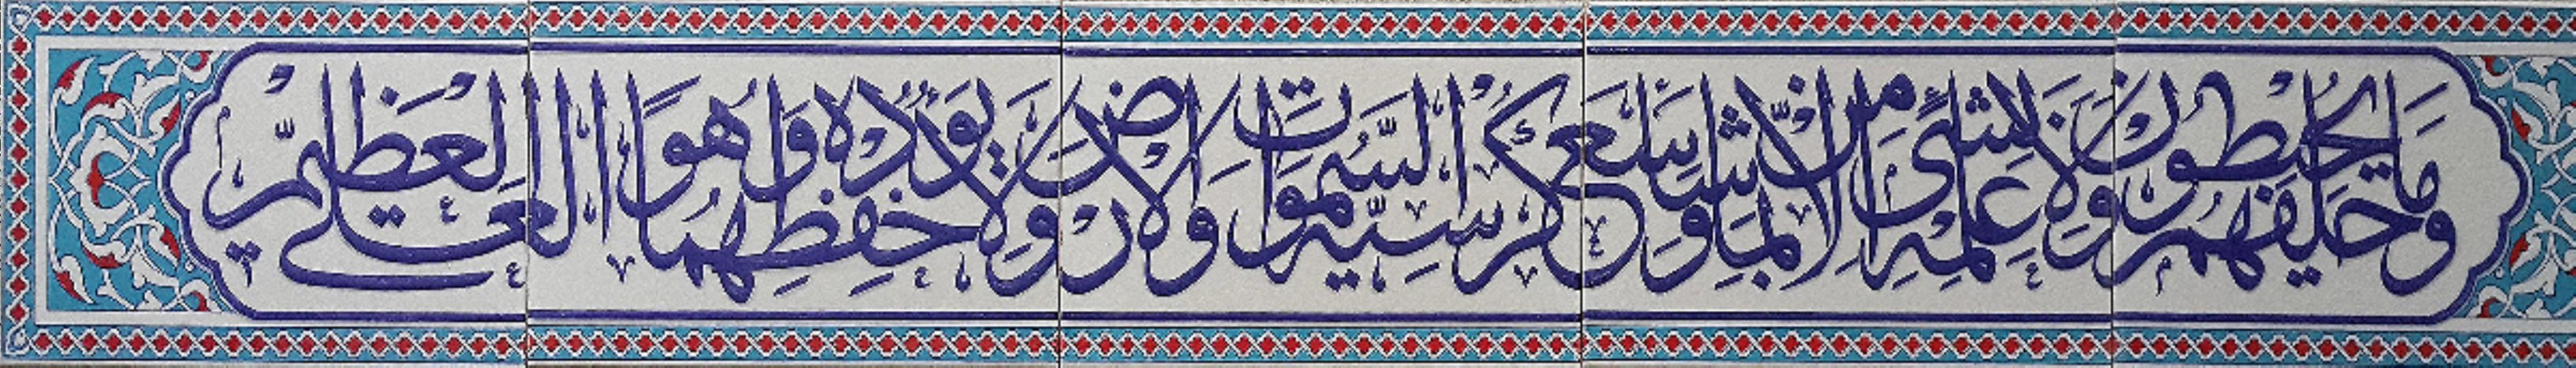 وَمَا خَلْفَهُمْ وَلَا يُحِيطُونَ بِشَيْءٍ مِنْ عِلْمِهِ إِلَّا بِمَا شَاءَ وَسِعَ كُرْسِيُّهُ السَّمَوَاتِ وَالْأَرْضَ وَلَا يَؤُدُهُ حِفْظُهُمَا وَهُوَ الْعَلِيُّ الْعَظِيمُ